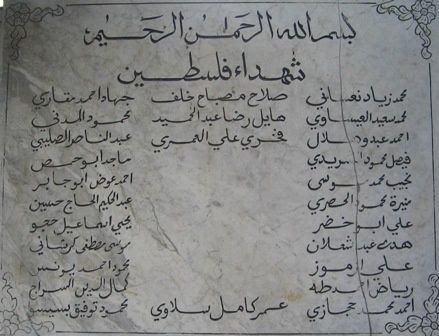 بسم الله الرحمن الرحيم
شهداء فلسطين
محمد زياد نعساني
محمد سعيد العيساوي
احمد عبدو
فيصل محمود
نجيب محمد
منيرة محمود الحصري
علي ابو خضر
هدى شعلان
علي
رياض طه
احمد محمد حجازي
صلاح مصباح خلف
هايل رضا عبد الحميد
فخري علي العمري
عمر كامل سلاوي
جهاد احمد
محمود المدني
عبد الناصر الصليبي
ماجد ابو حص
احمد عوض ابو جابر
عبد الحكيم الحاج حسين
يحيى اسماعيل حجو
موسى مصطفى
محمود احمد يونس
كمال الدين السراج
محمود توفيق بسيسو